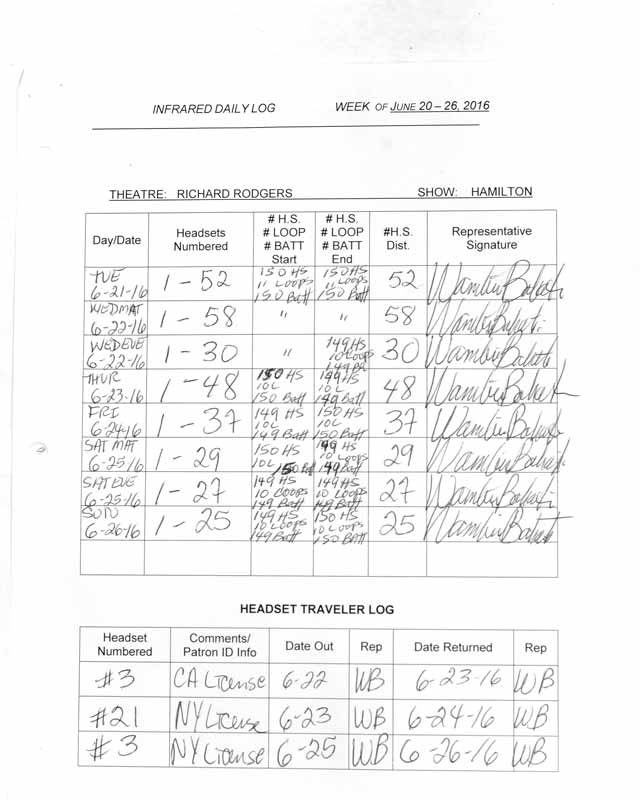 INFRARED DAILY LOG WEEK OF JUNE 20 – 26, 2016
THEATRE: RICHARD RODGERS SHOW: HAMILTON
Day/Date Headsets Numbered # H.S. # LOOP # BATT Start # H.S. # LOOP # BATT End #H.S. Dist. Representative Signature
TUE 6-21-16 1 - 52 150 HS 11 Loops 150 Batt 150 HS 11 Loops 150 Batt 52
WEDMAT 6-22-16 1 - 58 " " 58
WEDEVE 6-22-16 1 - 30 " 149 HS 10 Loops 149 Bat 30
THUR 6-23-16 1 - 48 150 HS 10L 150 Batt 149 HS 10L 149 Batt 48
FRI 6-24-16 1 - 37 149 HS 10L 149 Batt 150 HS 10L 150 Batt 37
SAT MAT 6-25-16 1 - 29 150 HS 10L 150 Batt 149 HS 10 Loops 149 Batt 29
SAT EVE 6-25-16 1 - 27 149 HS 10 Loops 149 Batt 149 HS 10 Loops 149 Batt 27
SUN 6-26-16 1 - 25 149 HS 10 Loops 149 Batt 150 HS 10 Loops 150 Batt 25
HEADSET TRAVELER LOG
Headset Numbered Comments/ Patron ID Info Date Out Rep Date Returned Rep
#3 CA License 6-22 WB 6-23-16 WB
#21 NY License 6-23 WB 6-24-16 WB
#3 NY License 6-25 WB 6-26-16 WB